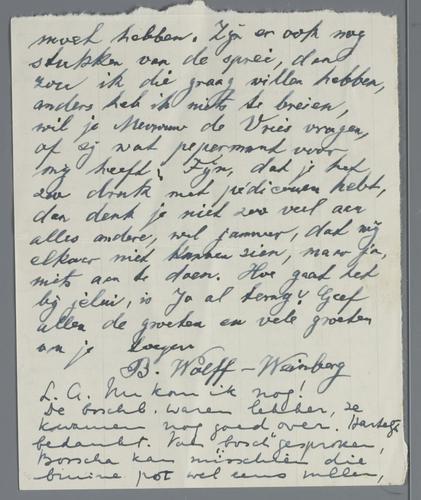 moet hebben. Zijn er ook nog
stukken van de sprei, dan
zou ik die graag willen hebben,
anders heb ik niets te breien,
wil je Mevrouw de Vries vragen,
of zij wat pepermunt voor
mij heeft. Fijn, dat je het
zoo druk met pedicuren hebt,
dan denk je niet zoo veel aan
alles andere, wel jammer, dat wij
elkaar niet kunnen zien, maar ja,
niets aan te doen. Hoe gaat het
bij jelui, is Jo al terug? Geef
allen de groeten en vele groeten
van je
B. Wolff-Weinberg
L. A. Nu kom ik nog!
De boschb. waren lekker, ze
kwamen nog goed over. Hartelijk
bedankt. Van bosch gesproken,
Borscha kan misschien die
bruine pot wel eens vullen,